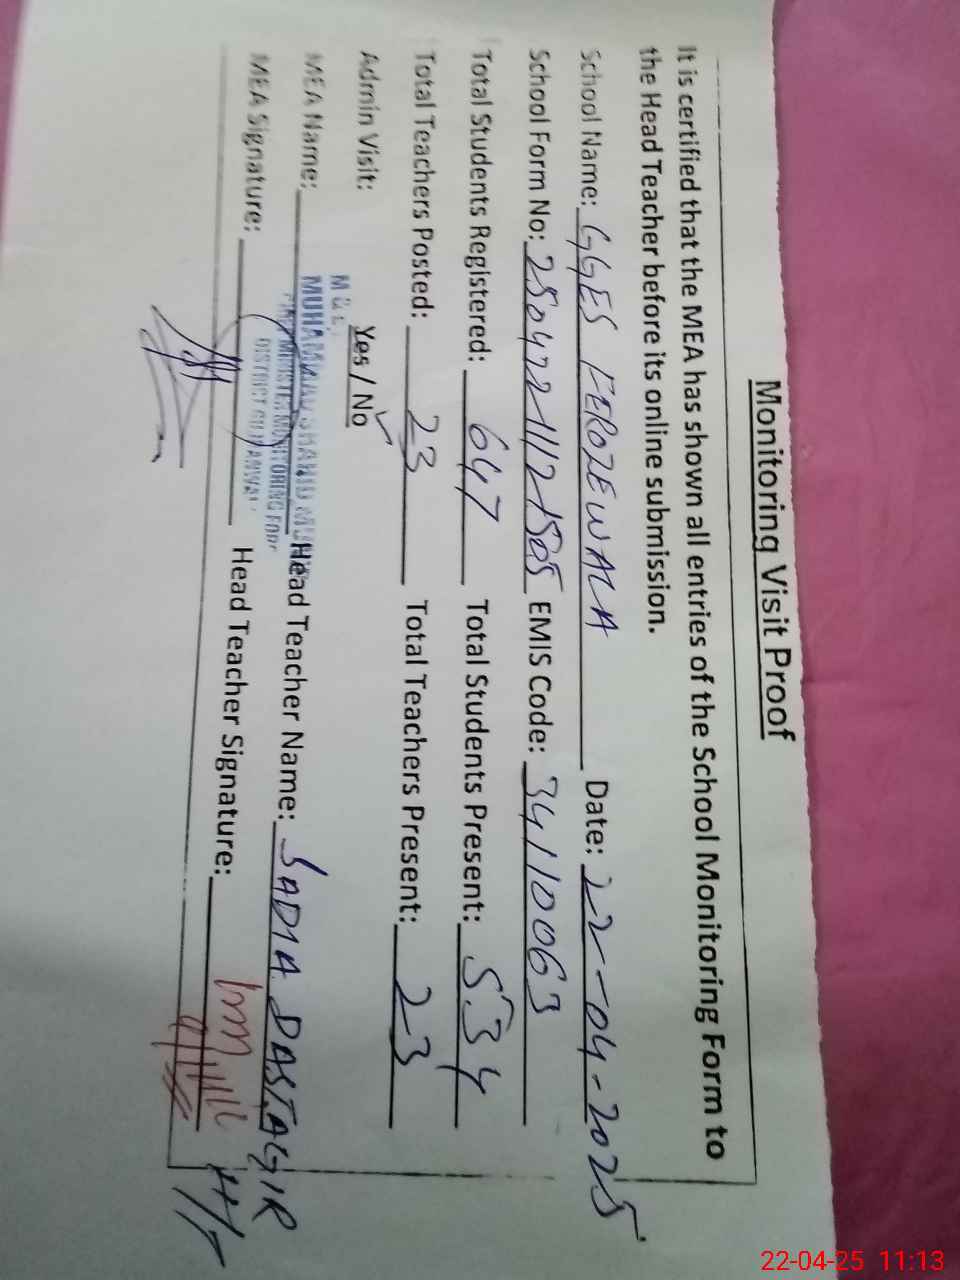 Monitoring Visit Proof
It is certified that the MEA has shown all entries of the School Monitoring Form to
the Head Teacher before its online submission.
School Name: GGES FEROZEWALA Date: 22-04-2025
School Form No: EMIS Code: 34110063
Total Students Registered: 647 Total Students Present: 534
Total Teachers Posted: 23 Total Teachers Present: 23
Admin Visit: Yes / No ✓
MEA Name: MUHAMMAD Head Teacher Name: SADIA DASTAGIR
MONITORING FORC
DISTRICT GUJRANWALA
MEA Signature: Head Teacher Signature: H/T
22-04-25 11:13